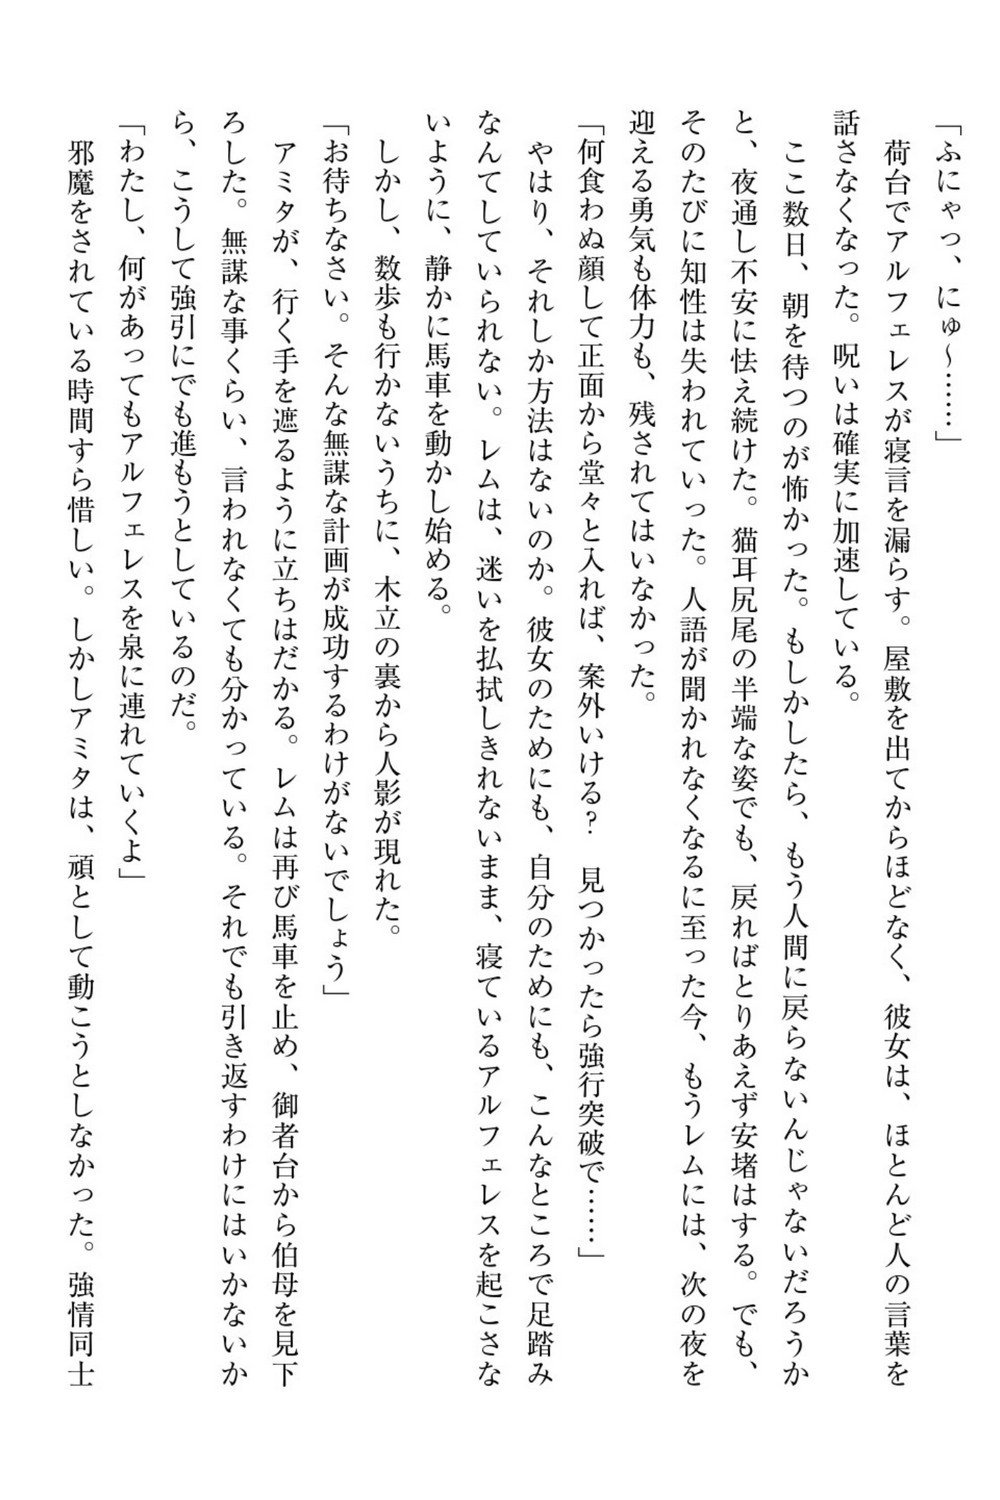 「ふにゃっ、にゅ～……」
　荷台でアルフェレスが寝言を漏らす。屋敷を出てからほどなく、彼女は、ほとんど人の言葉を
話さなくなった。呪いは確実に加速している。
　ここ数日、朝を待つのが怖かった。もしかしたら、もう人間に戻らないんじゃないだろうか
と、夜通し不安に怯え続けた。猫耳尻尾の半端な姿でも、戻ればとりあえず安堵はする。でも、
そのたびに知性は失われていった。人語が聞かれなくなるに至った今、もうレムには、次の夜を
迎える勇気も体力も、残されてはいなかった。
「何食わぬ顔して正面から堂々と入れば、案外いける？　見つかったら強行突破で……」
　やはり、それしか方法はないのか。彼女のためにも、自分のためにも、こんなところで足踏み
なんてしていられない。レムは、迷いを払拭しきれないまま、寝ているアルフェレスを起こさな
いように、静かに馬車を動かし始める。
　しかし、数歩も行かないうちに、木立の裏から人影が現れた。
「お待ちなさい。そんな無謀な計画が成功するわけがないでしょう」
　アミタが、行く手を遮るように立ちはだかる。レムは再び馬車を止め、御者台から伯母を見下
ろした。無謀な事くらい、言われなくても分かっている。それでも引き返すわけにはいかないか
ら、こうして強引にでも進もうとしているのだ。
「わたし、何があってもアルフェレスを泉に連れていくよ」
　邪魔をされている時間すら惜しい。しかしアミタは、頑として動こうとしなかった。強情同士